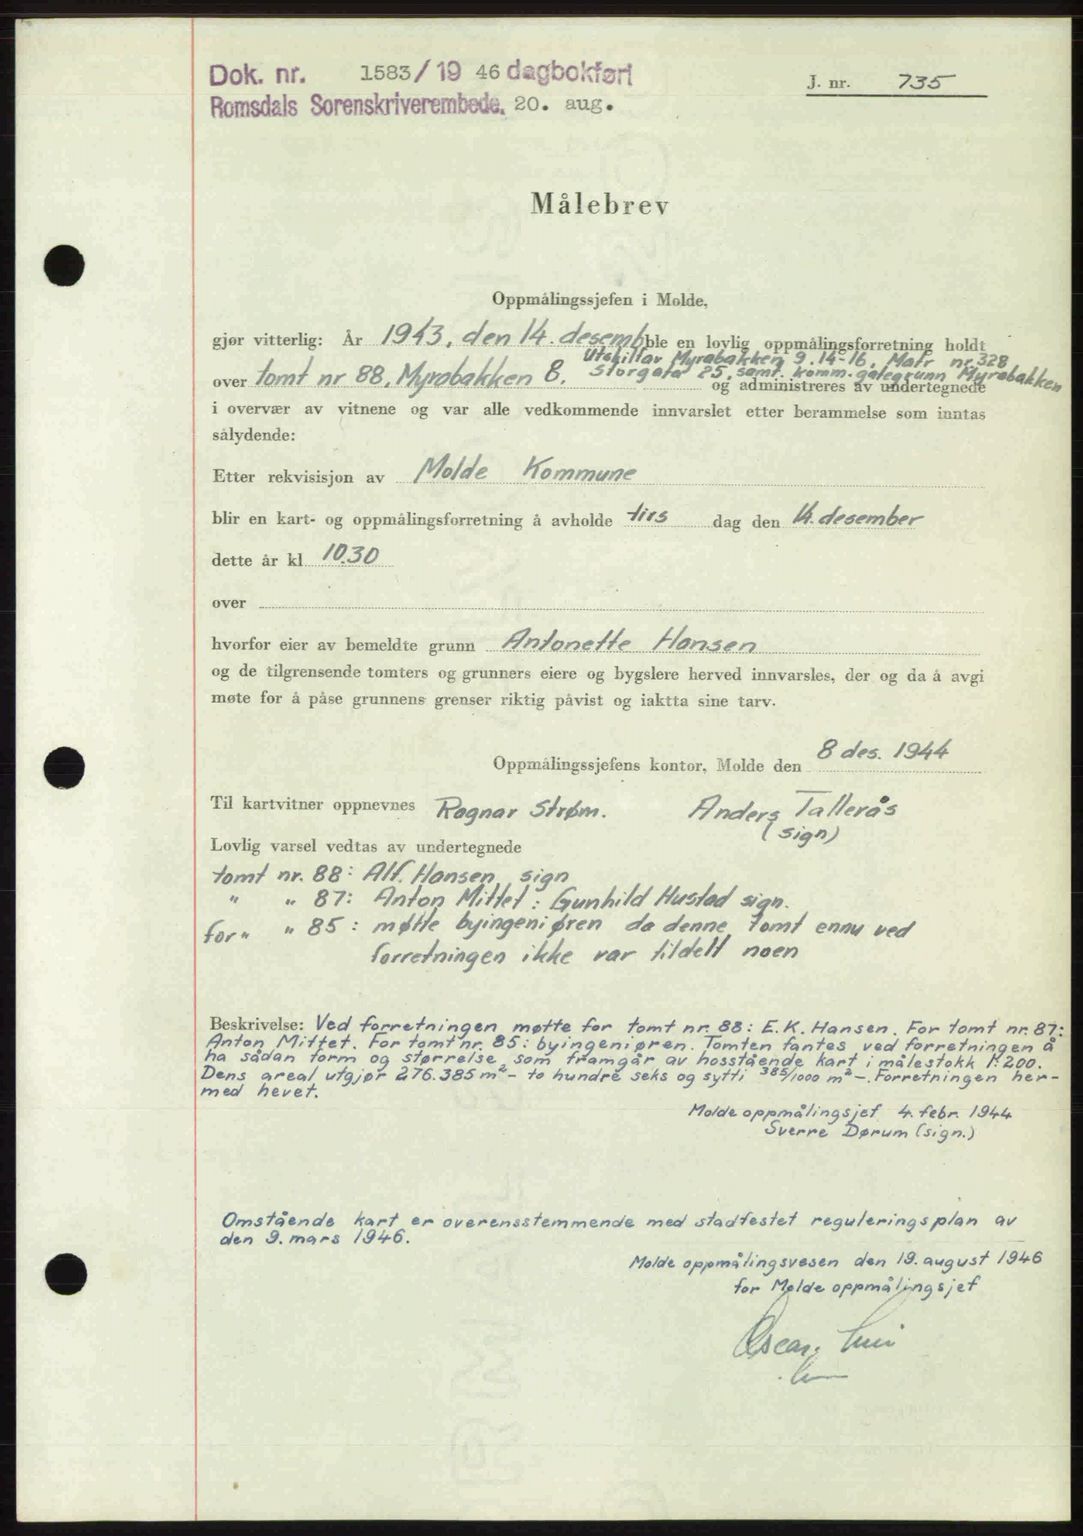 Dok. nr. 1583/19 46 dagbokført
Romsdals Sorenskriverembede, 20. aug.
J. nr. 735
Målebrev
Oppmålingssjefen i Molde,
gjør vitterlig: År 1943, den 14. desemb ble en lovlig oppmålingsforretning holdt
Utskiltav Myrabakken 9. 14-16, Matr nr. 328
over tomt nr 88, Myrabakken 8. Storgata 25, samt. komm. gategrunn Myrabakken
og administreres av undertegnede
i overvær av vitnene og var alle vedkommende innvarslet etter berammelse som inntas
sålydende:
Etter rekvisisjon av Molde Kommune
blir en kart- og oppmålingsforretning å avholde tirs dag den 14. desember
dette år kl 10.30
over
hvorfor eier av bemeldte grunn Antonette Hansen
og de tilgrensende tomters og grunners eiere og bygslere herved innvarsles, der og da å avgi
møte for å påse grunnens grenser riktig påvist og iaktta sine tarv.
Oppmålingssjefens kontor, Molde den 8 des. 1944
Til kartvitner oppnevnes Ragnar Strøm. Anders Tallerås
(sign)
Lovlig varsel vedtas av undertegnede
tomt nr. 88: Alf. Hansen sign
" " 87: Anton Mittet: Gunhild Hustad sign.
for " " 85: møtte byingeniøren da denne tomt ennu ved
forretningen ikke var tildelt noen
Beskrivelse: Ved forretningen møtte for tomt nr. 88: E. K. Hansen. For tomt nr. 87:
Anton Mittet. For tomt nr. 85: byingeniøren. Tomten fantes ved forretningen å
ha sådan form og størrelse som framgår av hosstående kart i målestokk 1:200.
Dens areal utgjør 276.385 m² - to hundre seks og sytti 385/1000 m² -. Forretningen her-
med hevet.
Molde oppmålingsjef 4. febr. 1944
Sverre Dørum (sign.)
Omstående kart er overensstemmende med stadfestet reguleringsplan av
den 9. mars 1946.
Molde oppmålingsvesen den 19. august 1946
for Molde oppmålingsjef
Oscar